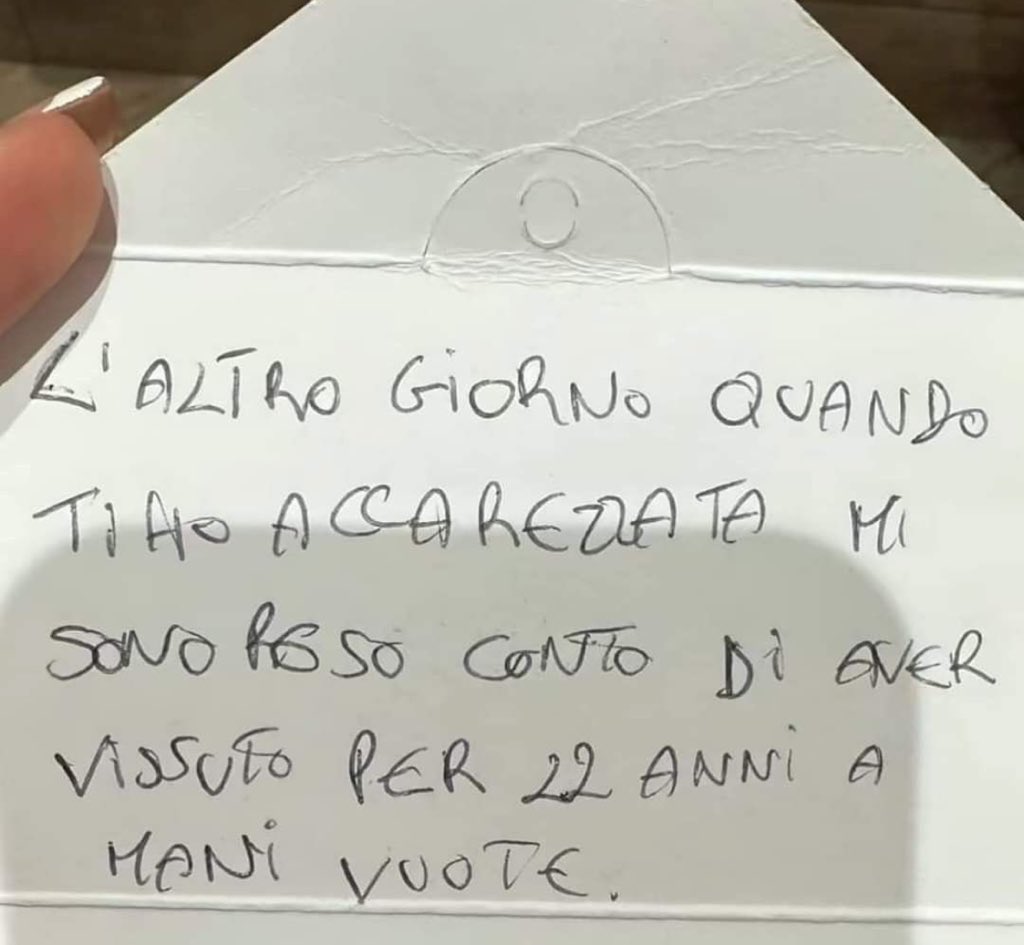 L'ALTRO GIORNO QUANDO
TI HO ACCAREZZATA MI
SONO RESO CONTO DI AVER
VISSUTO PER 22 ANNI A
MANI VUOTE.